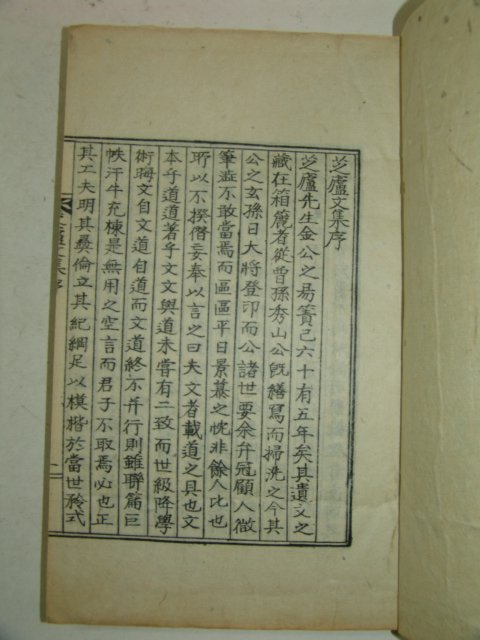 芝廬文集序
芝廬先生金公之易簀已六十有五年矣其遺文之
藏在箱簏者從曾孫秀山公旣繕寫而掃洗之今其
公之玄孫日大將登印而公諸世要余弁冠顧人微
筆澁不敢當焉而區區平日景慕之忱非餘人比也
所以不揆僭妄奉以言之曰夫文者載道之具也文
本乎道道著乎文文與道未嘗有二致而世級降學
術晦文自文道自道而文道終不并行則雖聯篇巨
帙汗牛充棟是無用之空言而君子不取焉必也正
其工夫明其彝倫立其紀綱足以模楷於當世矜式
文集序